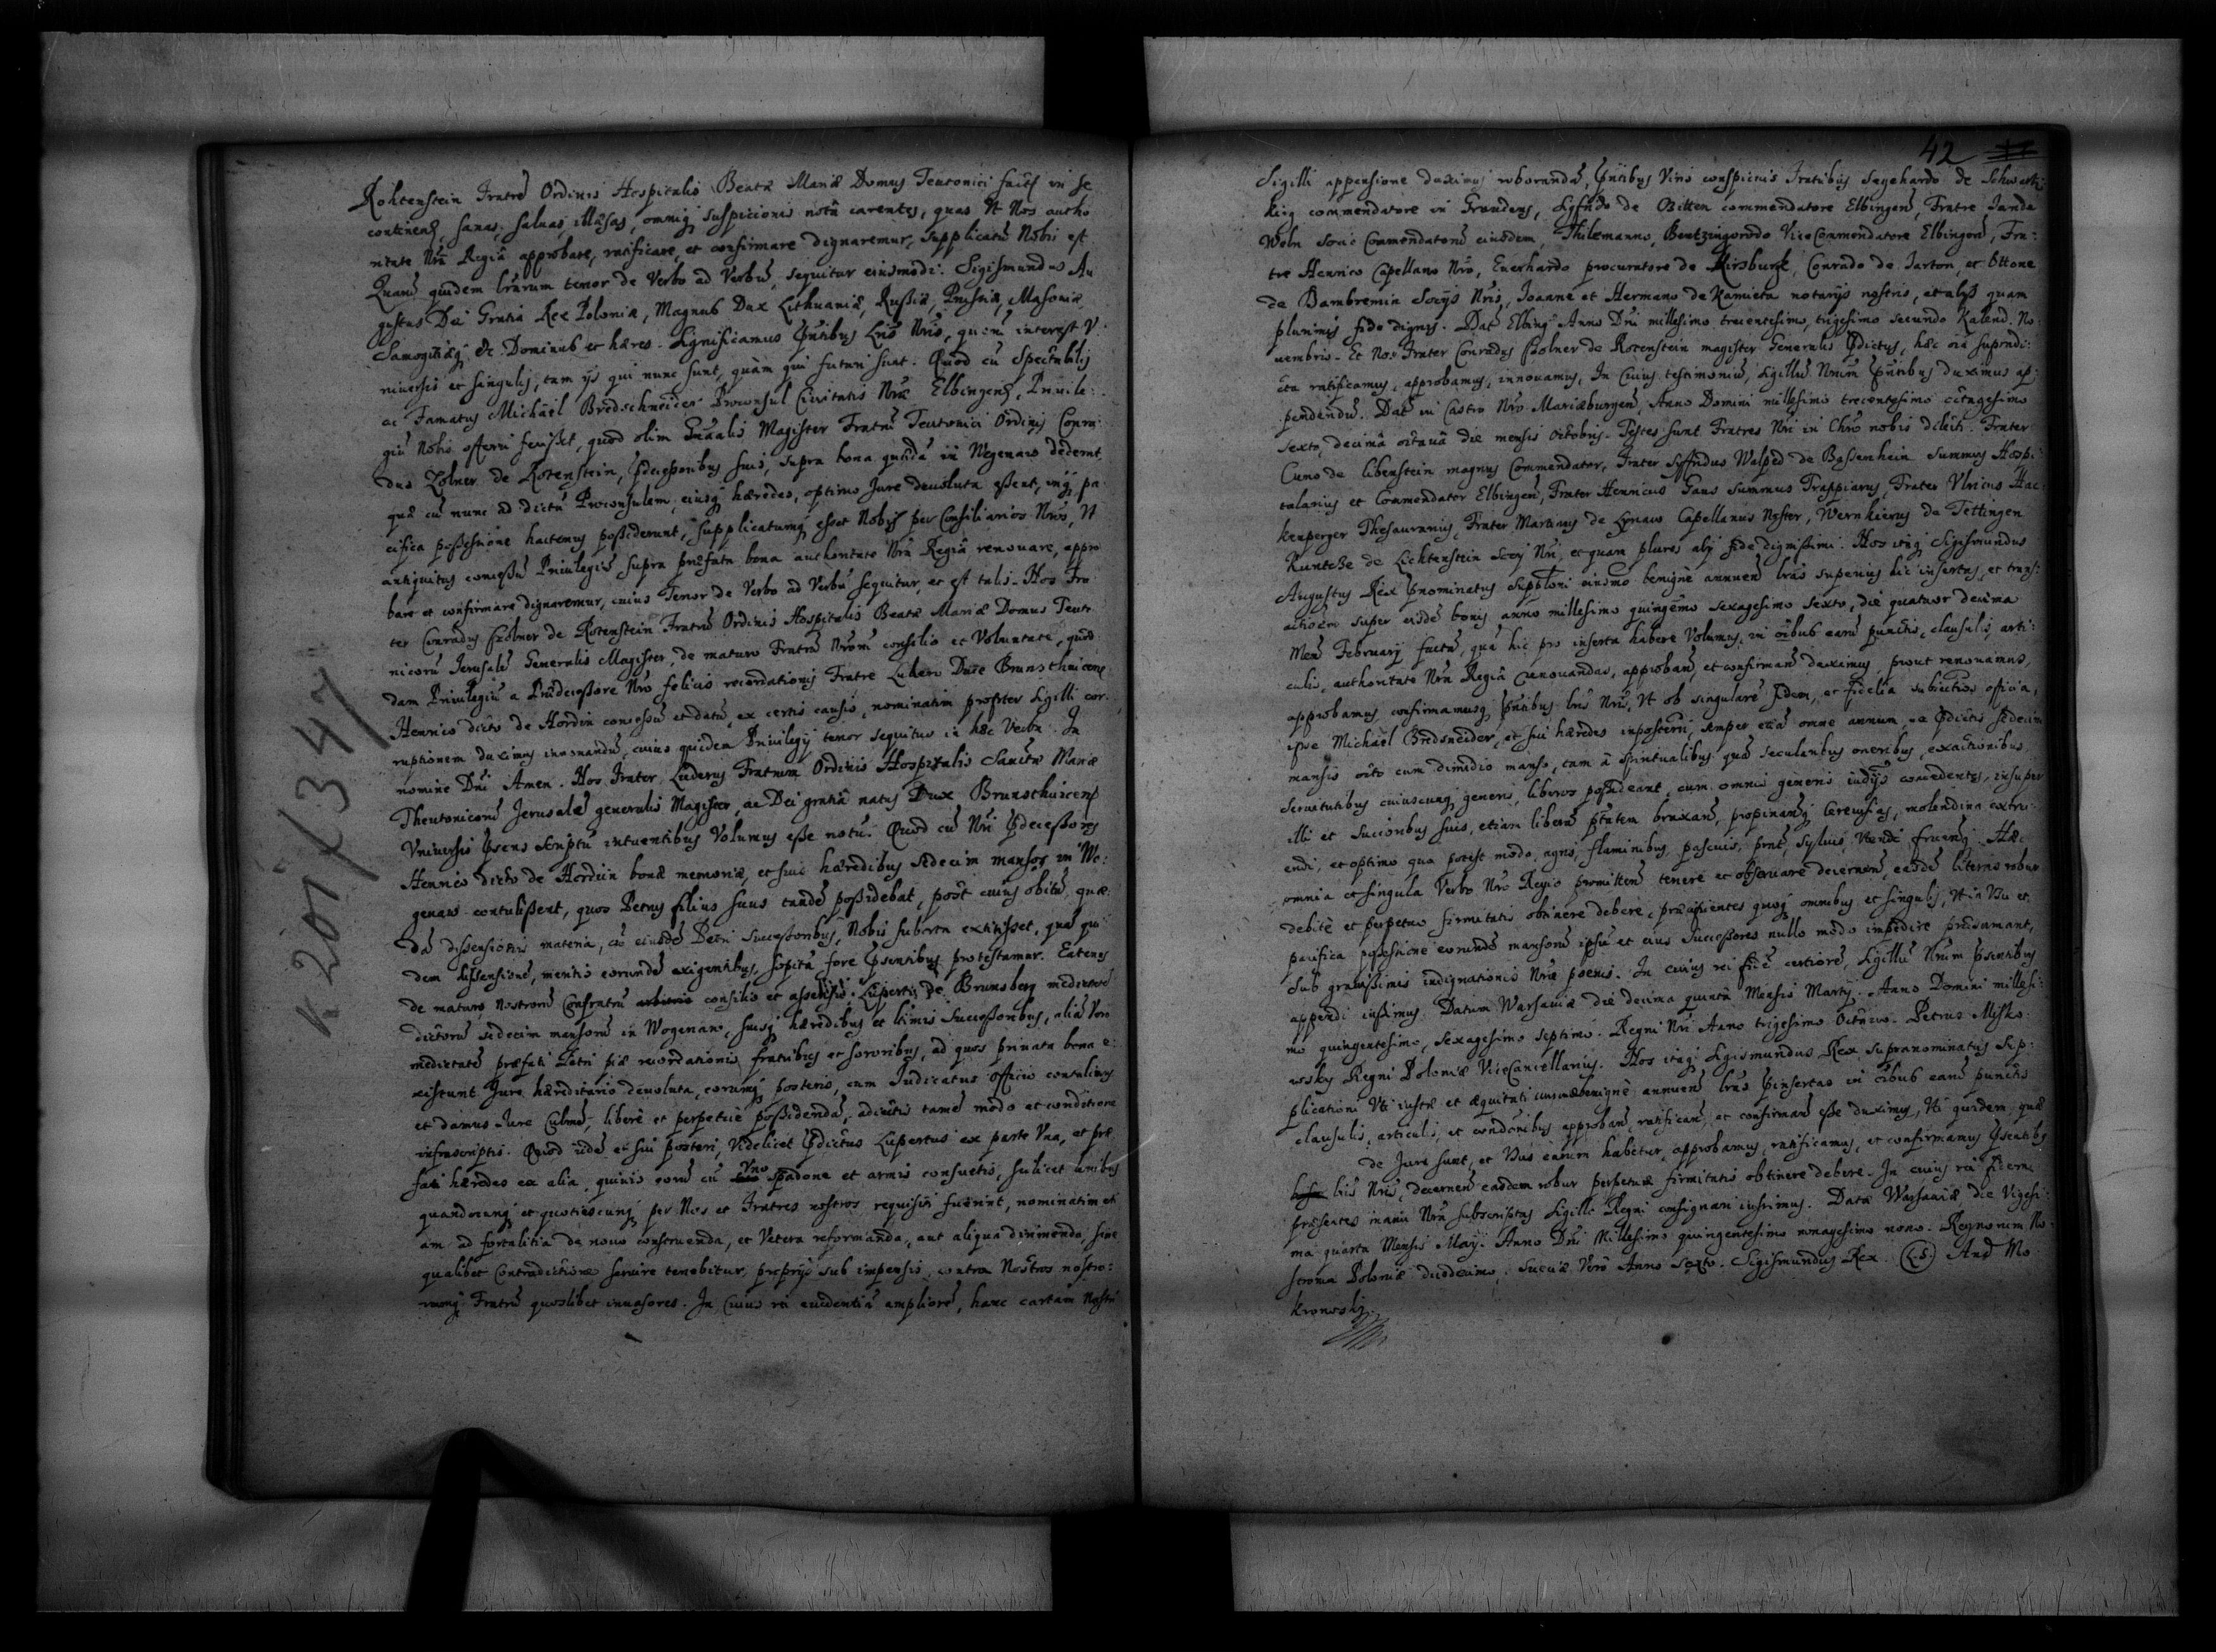 Rohtenstein Fratrẽ Ordinis Hospitalis Beatæ Mariæ Domus Teutonici in se
continen̄, sanas, saluas, illæsas, omniq̃ suspicionis notâ carentes, quas Vt Nos autho
ritate Nr̃â Regiâ approbare, ratificare, et confirmare dignaremur, supplicatũ Nobis est
Quarũ quidem lr̃arum tenor de Verbo ad Verbũ, sequitur eiusmodi. Sigismundus Au
gustus Dei Gratia Rex Poloniæ, Magnus Dux Lithuaniæ, Russiæ, Prussiæ, Masouiæ
Samogitiæq̃ &c. Dominus et hæres. Significamus Pñtibus Lr̃is Nr̃is, quorũ interest V
niuersis et singulis, tam ijs qui nunc sunt, quàm qui futuri sunt. Quod cũ Spectabilis
ac Famatus Michaël Bredschneider Proconsul Ciuitatis Nr̃æ Elbingen̄, Priuile:
giũ Nobis offerri fecisset, quod olim Gnãlis Magister Fratrũ Teutonici Ordinis Conra:
dus Zolner de Rotenstein, Pdecessoribus suis, supra bona quædã in Wogenaw dederat,
quæ cũ nunc ad dictũ Proconsulem, eiusq̃ hæredes, optimo Jure deuoluta essent, inq̃ pa
cifica possessione hactenus possiderunt, supplicatumq̃ esset Nobis per Consiliarios Nr̃os, Vt
antiquitus concessũ Priuilegiũ supra præfata bona authoritate Nr̃a Regiâ renouare, appro
bare et confirmare dignaremur, cuius Tenor de Verbo ad Verbũ sequitur, et est talis. Nos Fra
ter Conradus Czolner de Rotenstein Fratrũ Ordinis Hospitalis Beatæ Mariæ Domus Teuto
nicorũ Jerusalẽ Generalis Magister, de maturo Fratrũ Nr̃orũ consilio et Voluntate, quod
dam Priuilegiũ a Prædecessore Nr̃o felicis recordationis Fratre Ludero Duce Brunsthuicen̄
Henrico dicto de Hordin concessũ et datũ, ex certis causis, nominatim propter Sigilli cor
ruptionem duximus innouandũ, cuius quidem Priuilegij tenor sequitur in hæc Verba. In
nomine Dñi Amen. Nos Frater Luderus Fratrum Ordinis Hospitalis Sanctæ Mariæ
Theutonicorũ Jerusalẽ generalis Magister, ac Dei gratiâ natus Dux Brunsthuicen̄
Vniuersis Psens Scriptũ intuentibus Volumus esse notũ. Quod cũ Nr̃i Pdecessores
Henrico dicto de Hordein bonæ memoriæ, et suis hæredibus sedecim mansos in Wo:
genaw contulissent, quos Petrus filius suus tandẽ possidebat, post cuius obitũ, quæ:
dã dissensionis materia, cũ eiusdẽ Petri successoribus, Nobis suborta extitisset, quã qui
dem dissensionẽ, mentis eorundẽ exigentibus, sopitã fore Psentibus protestamur. Eatenus
de maturo Nostrorũ Confratrũ consilio et assensu, Luperto de Brunsberg medietatẽ
dictorũ sedecim mansorũ in Wogenaw, suisq̃ hæredibus et ltimis successoribus, aliã Vero
medietatẽ præfati Petri piæ recordationis fratribus et sororibus, ad quos priuata bona e:
xistunt Jure hæreditario deuoluta, eorumq̃ posteris, cum Judicatus officio contulimus
et damus Jure Culmẽ, liberè et perpetuè possidendã, adiectis tamẽ modo et conditione
infrascriptis. Quod ijdẽ et sui posteri, Videlicet Pdictus Lupertus ex parte Vna, et præ
fati hæredes ex alia, quiuis eorũ cũ Vno spadone et armis consuetis, scilicet omibus
quandocunq̃ et quotiescunq̃ per Nos et Fratres nostros requisiti fuerint, nominatim eti
am ad fortalitia de nouo construenda, et Vetera reformanda, aut aliqua dirimenda, sine
qualibet Contradictione seruire tenebitur, proprijs sub impensis, contra Nostros nostro:
rumq̃ Fratrũ quoslibet inuasores. In Cuius rei euidentiã ampliorẽ, hanc cartam Nostri
n 201/347
42
Sigilli appensione duximus roborandã, Pñtibus Viris conspicuis Fratribus Segehardo de Schwartz
burg commendatore in Grudens, Syfrido de Sitten commendatore Elbingen̄, Fratre Janda
Woln socio Commendatoris eiusdem, Thilemanno, Vice Commendatore Elbingen̄, Fra:
tre Henrico Capellano Nr̃o, Euerhardo procuratore de Kirsburgk, Conrado de Jarton, et Ottone
de Bambremin Socijs Nr̃is, Joanne et Hermano de Kamieta notarijs nostris, et alijs quam
plurimis fide dignis. Dat̃ Elbing Anno Dñi millesimo trecentesimo, trigesimo secundo Kalend. No
uembris. Et Nos Frater Conradus Czolner de Rotenstein magister Generalis Pdictus, hæc oĩa supradi:
cta ratificamus, approbamus, innouamus, In Cuius testimoniũ, Sigillũ Nr̃um Pñtibus duximus ap:
pendendũ. Dat̃ in Castro Nr̃o Mariæburgen̄, Anno Domini millesimo trecentesimo octuagesimo
sexto, decimâ octauâ die mensis Octobris. Testes sunt Fratres Nr̃i in Chr̃o nobis dilecti. Frater
Cuno de Libenstein magnus Commendator, Frater Syffridus Walped de Bassenhein Summus Hospi:
talarius et Commendator Elbingen̄, Frater Henricus Gans Summus Trappiarus, Frater Vlricus Hac
kenperger Thesaurarius, Frater Martinus de Lynaw Capellanus Noster, Wernherus de Tettingen
Kuntcze de Lichtenstein socij Nr̃i, et quam plures alij fide dignissimi. Nos itaq̃ Sigismundus
Augustus Rex Pnominatus supplõni eiusmõ benignè annuen̄ lr̃as superius hic insertas, et trans:
actiõem super eisdẽ bonis anno millesimo quingẽmo sexagesimo sexto, die quatuor decima
Men̄ February factã, quã hic pro inserta habere Volumus, in oĩbus earũ punctis, clausulis, arti:
culis, authoritate Nr̃a Regiâ renouandas, approban̄, et confirman̄ duximus, prout renouamus,
approbamus confirmamusq̃ Pñtibus lr̃is Nr̃is, Vt ob singularẽ fidem, et fidelia subiectionis officia,
ipse Michaël Bredsneider, et sui hæredes inposterũ, semper etiã omne annum de Pdictis sedecim
mansis octo cum dimidio manso, tam à spiritualibus quã secularibus oneribus, exactionibus,
seruitutibus cuiuscunq̃ generis, liberos possideant, cum omnis generis iudijs concedentes, insuper
illi et Succesoribus suis, etiam liberã ptãtem braxan̄, propinan̄q̃ Cereuisias, molendina extru:
endi, et optimo quo potest modo, agris, fluminibus, pascuis, prat̃, syluis, Vtendi fruen̄q̃. Hæc
omnia et singula Verbo Nr̃o Regio promitten̄ tenere et obseruare decernen̄, easdẽ literas robur
debitè et perpetuæ firmitatis obtinere debere, præcipientes quoq̃ omnibus et singulis, Vt in Vsu et
pacifica possessione eorundẽ mansorũ ipsũ et eius Successores nullo modo impedire præsumant,
sub grauissimis indignationis Nr̃æ poenis. In cuius rei fidẽ certiorẽ, Sigillũ Nr̃um Psentibus
appendi iussimus. Datum Warsauiæ die decima quinta Mensis Martij. Anno Domini millesi:
mo quingentesimo, sexagesimo septimo. Regni Nr̃i Anno trigesimo Octauo. Petrus Mysko:
wsky Regni Poloniæ ViceCancellarius. Nos itaq̃ Sigismundus Rex supranominatus Sup:
plicationi Vti iustæ et æquitati benignè annuen̄ lr̃as Pinsertas in oĩbus earũ punctis
clausulis, articulis, et conditõnibus approban̄, ratifican̄, et confirman̄ esse duximus, Vti quidem quæ
de Jure sunt, et Vsus earum habetur, approbamus, ratificamus, et confirmamus Psentibus
lr̃is Nr̃is, decernen̄ easdem robur perpetuæ firmitatis obtinere debere. In cuius rei fidem
præsentes manu Nr̃a subscriptas Sigillo Regni consignari iussimus. Datæ Warsauiæ die Vigesi:
ma quarta Mensis Maij. Anno Dñi Millesimo quingentesimo nonagesimo nono. Regnorum No:
strorum Poloniæ duodecimo, Sueciæ Verò Anno sexto. Sigismundus Rex. (L.S.) And̃ Mo
kronosky.